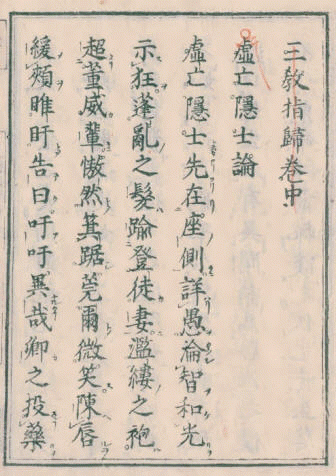 三敎指歸卷中
虛亡隱士論
虛亡隱士先在座側詳愚淪智和光
示狂蓬亂之髮踰登徒妻濫縷之袍
超董威輦慠然箕踞莞爾微笑陳唇
緩頰睢盱告曰吁吁異哉卿之投藥